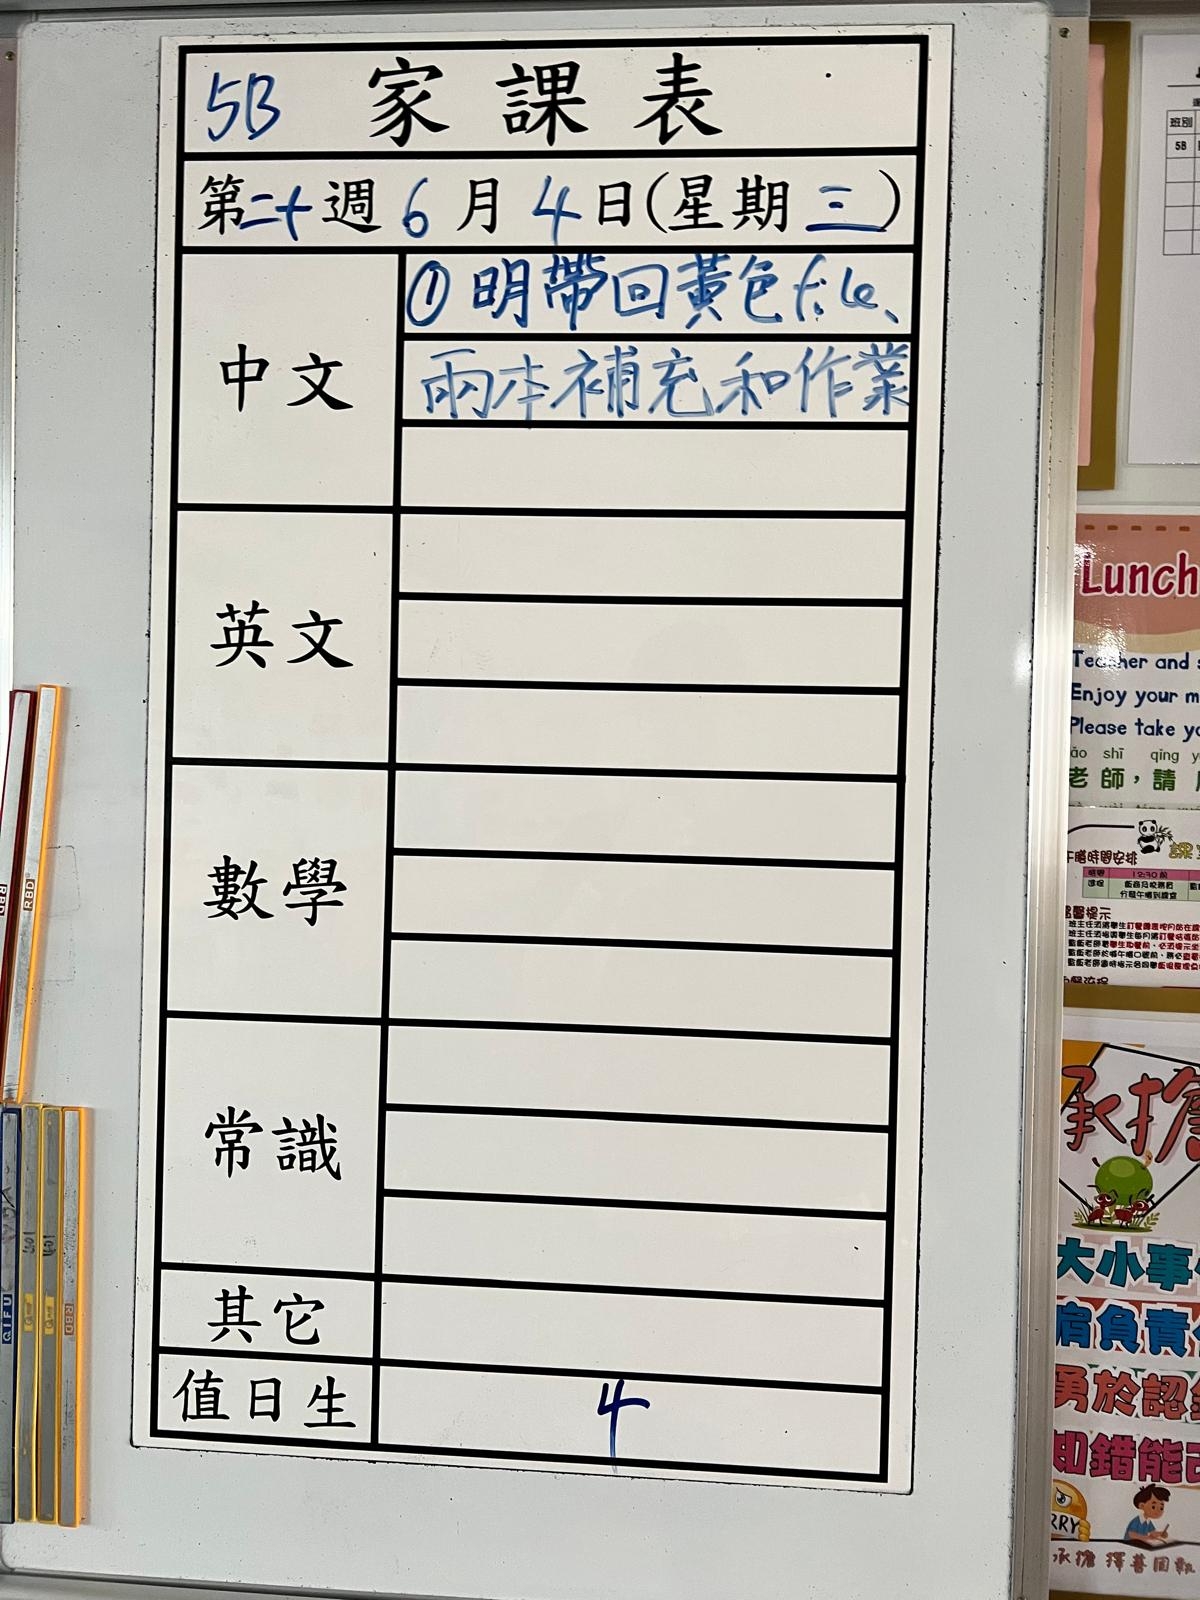 5B 家課表
第二十週 6月4日(星期三)
中文
①明帶回黃色file、
兩本補充和作業
英文
數學
常識
其它
值日生 4
班別
5B
Lunch
Teacher and
Enjoy your
Please take
shī qǐng
老師，請
午膳時間安排
12:30前
承擔
大小事
肩負責
勇於認
知錯能
承擔
RBD
RBD
QIFU
RBD